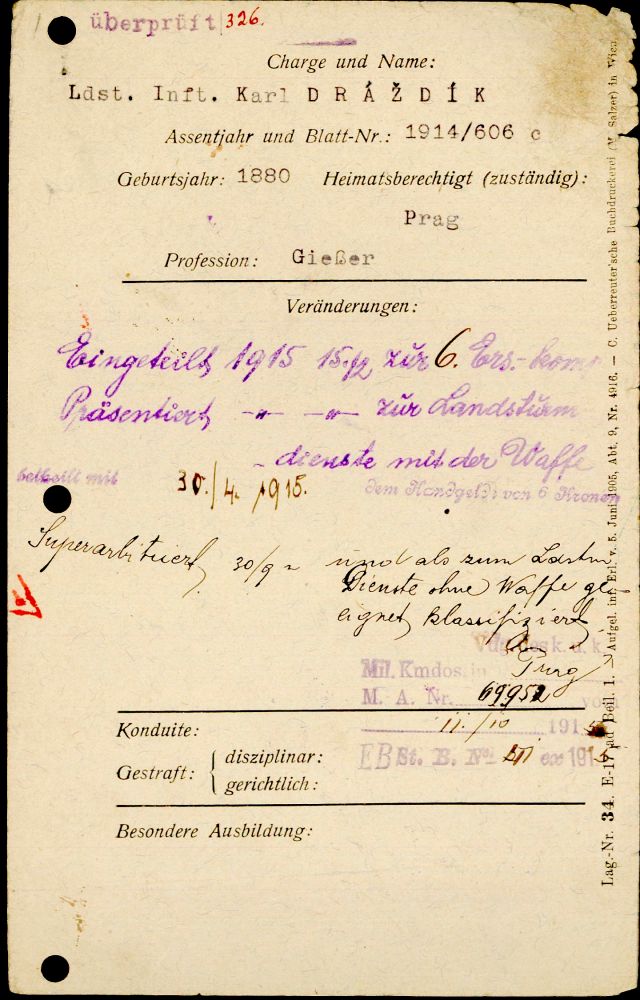 überprüft 326.
Charge und Name:
Ldst. Inft. Karl DRÁŽDÍK
Assentjahr und Blatt-Nr.: 1914/606 c
Geburtsjahr: 1880 Heimatsberechtigt (zuständig):
Prag
Profession: Gießer
Veränderungen:
Eingeteilt 1915 15./2 zur 6. Ers.-komp
Präsentiert -〃- -〃- zur Landsturm
dienste mit der Waffe
beteilt mit 30./4. 1915. dem Handgelde von 6 Kronen
Superarbitriert 30/9 〃 und als zum Ldstm
Dienste ohne Waffe ge
eignet klassifiziert
Vdg des k. u. k.
Mil. Kmdos. in Prag
M. A. Nr. 69952 vom
11./10 1915
Konduite:
EBSt. B. No ex 1915
Gestraft: { disziplinar:
gerichtlich:
Besondere Ausbildung:
Lag.-Nr. 34. E-17 ad Beil. 1. Aufgel. int. Erl. v. 5. Juni 1905, Abt. 9, Nr. 4916. — C. Ueberreuter'sche Buchdruckerei (M. Salzer) in Wien.